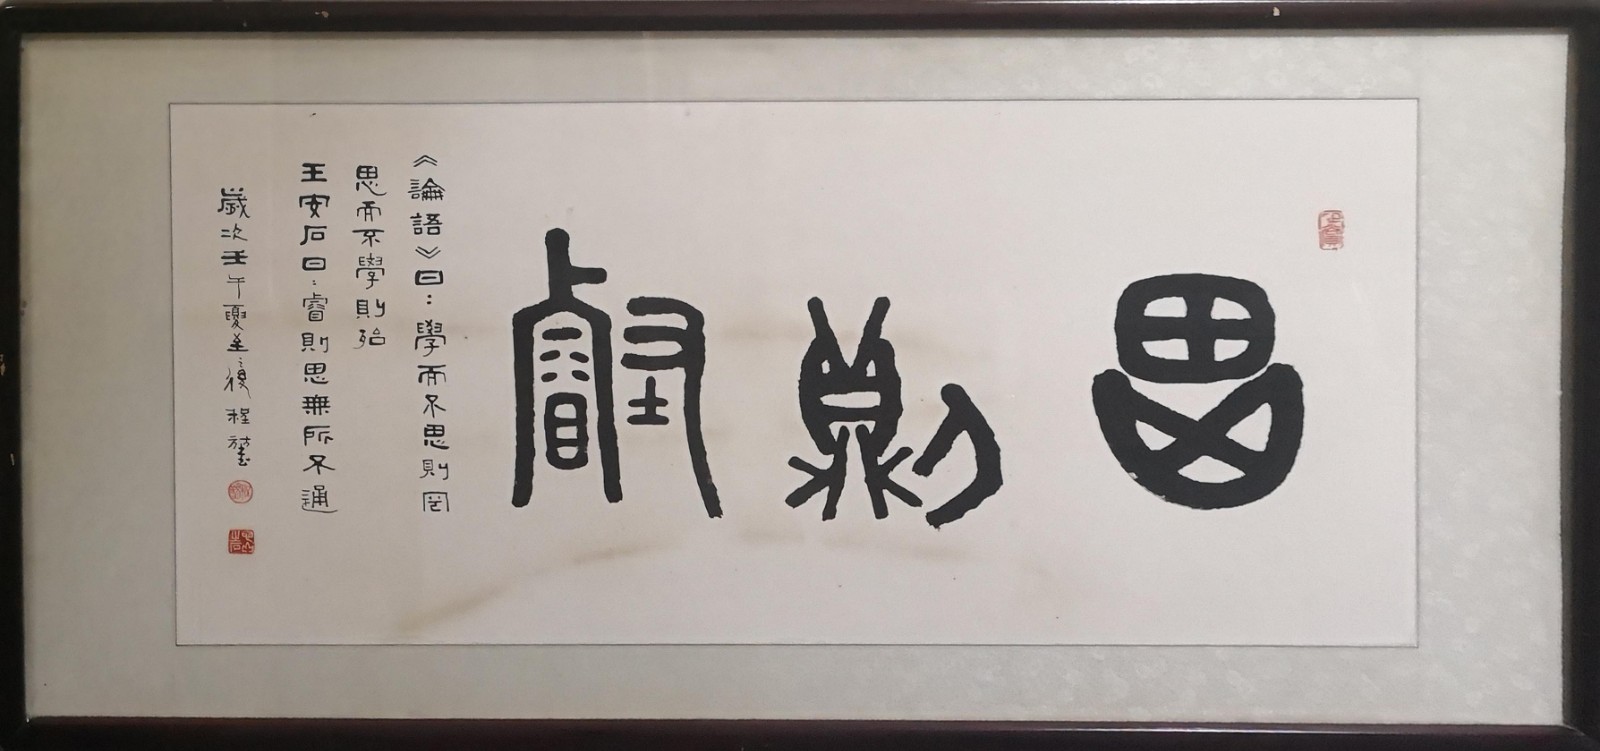 思則睿
《論語》曰：學而不思則罔
思而不學則殆
王安石曰：睿則思無所不通
歲次壬午夏至後 程